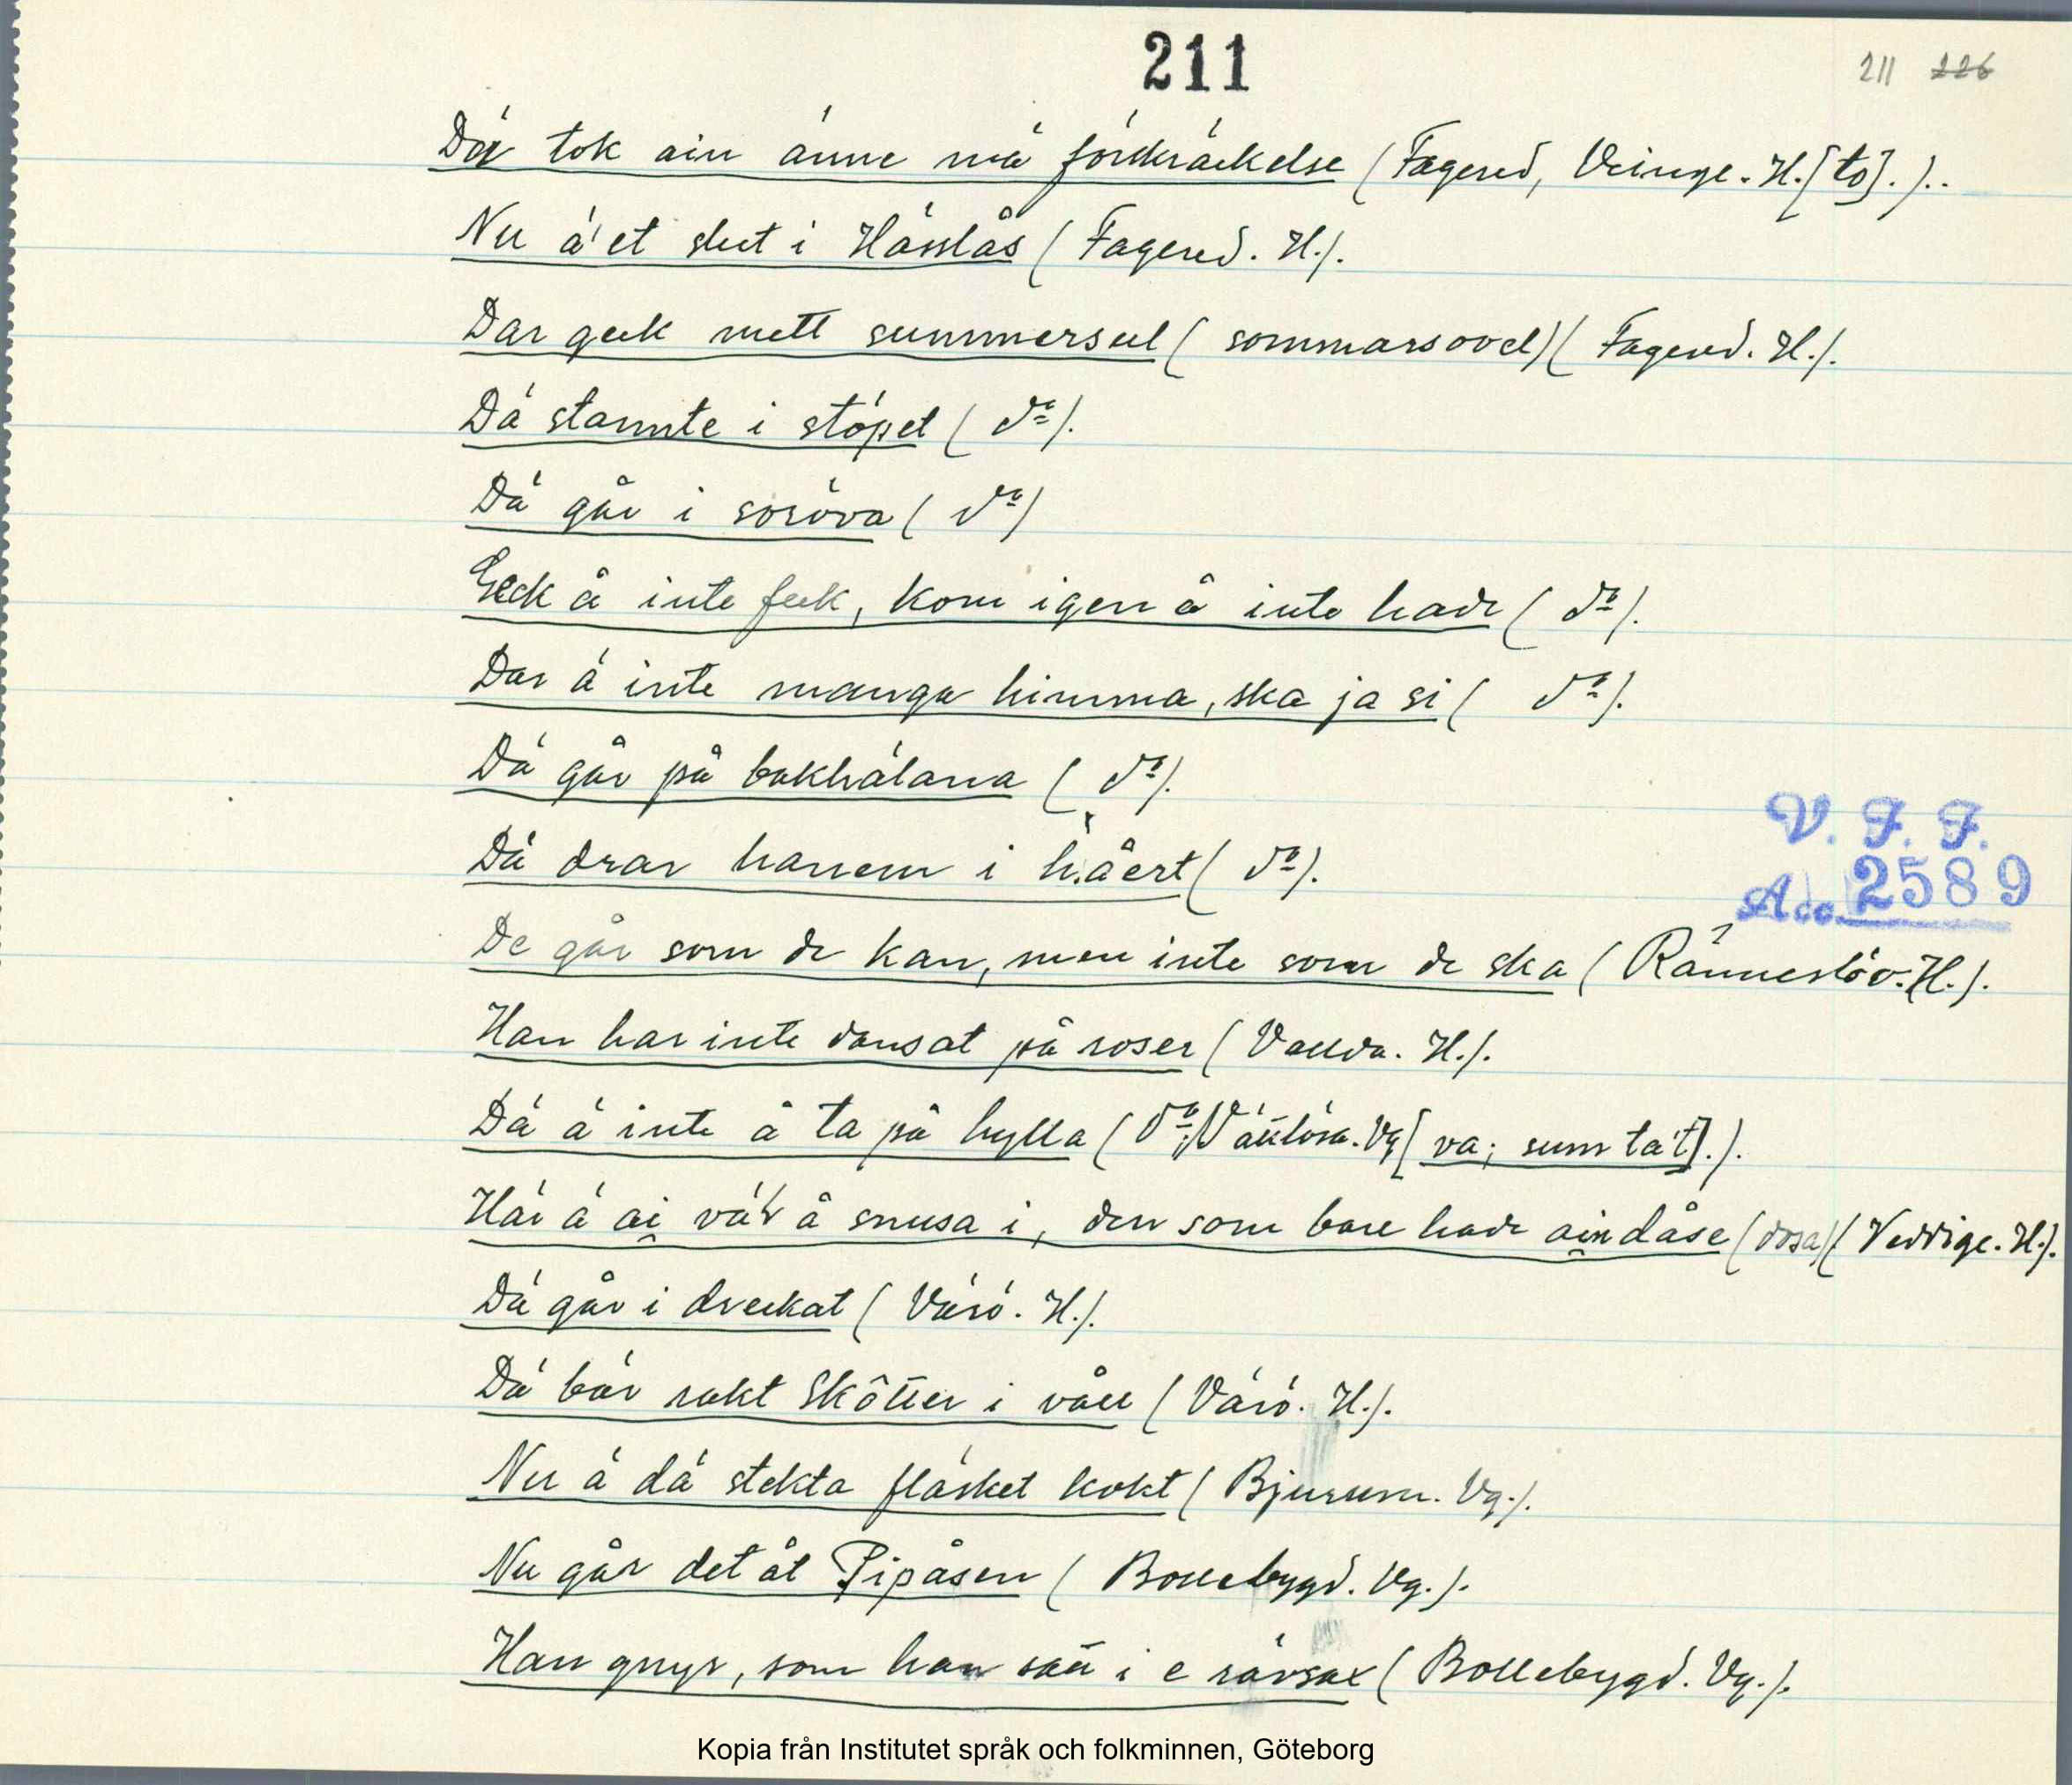 211
211 226
Dä tok ain änne mä förskräckelse (Fagered, Veinge. H.[to].)..
Nu ä'et slut i Hässlås (Fagered. H.).
Dar geck mett summersul (sommarsovel) (Fagered. H.).
Dä stannte i stöpet (do).
Dä går i soröva (do)
Geck å inte feck, kom igen å inte hade (do).
Dar ä inte manga himma, ska ja si (do).
Dä går på bakhälana (do).
Dä drar hanem i håert (do).
V. F. F.
Acc. 2589
De går som de kan, men inte som de ska (Ränneslöv. H.).
Han har inte dansat på roser (Vallda. H.).
Dä ä inte å ta på hylla (do; Västlösa. Vg [va; sum ta't].).
Här ä ai vär å snusa i, den som bare hade ain dåse (dosa) (Veddige. H.).
Dä går i dreckat (Värö. H.).
Dä bär rakt Skötter i våll (Värö. H.).
Nu ä dä stekta fläsket kokt (Bjurum. Vg.).
Nu går det åt Pipåsen (Bollebygd. Vg.).
Han gnyr, som han satt i e rävsax (Bollebygd. Vg.).
Kopia från Institutet språk och folkminnen, Göteborg